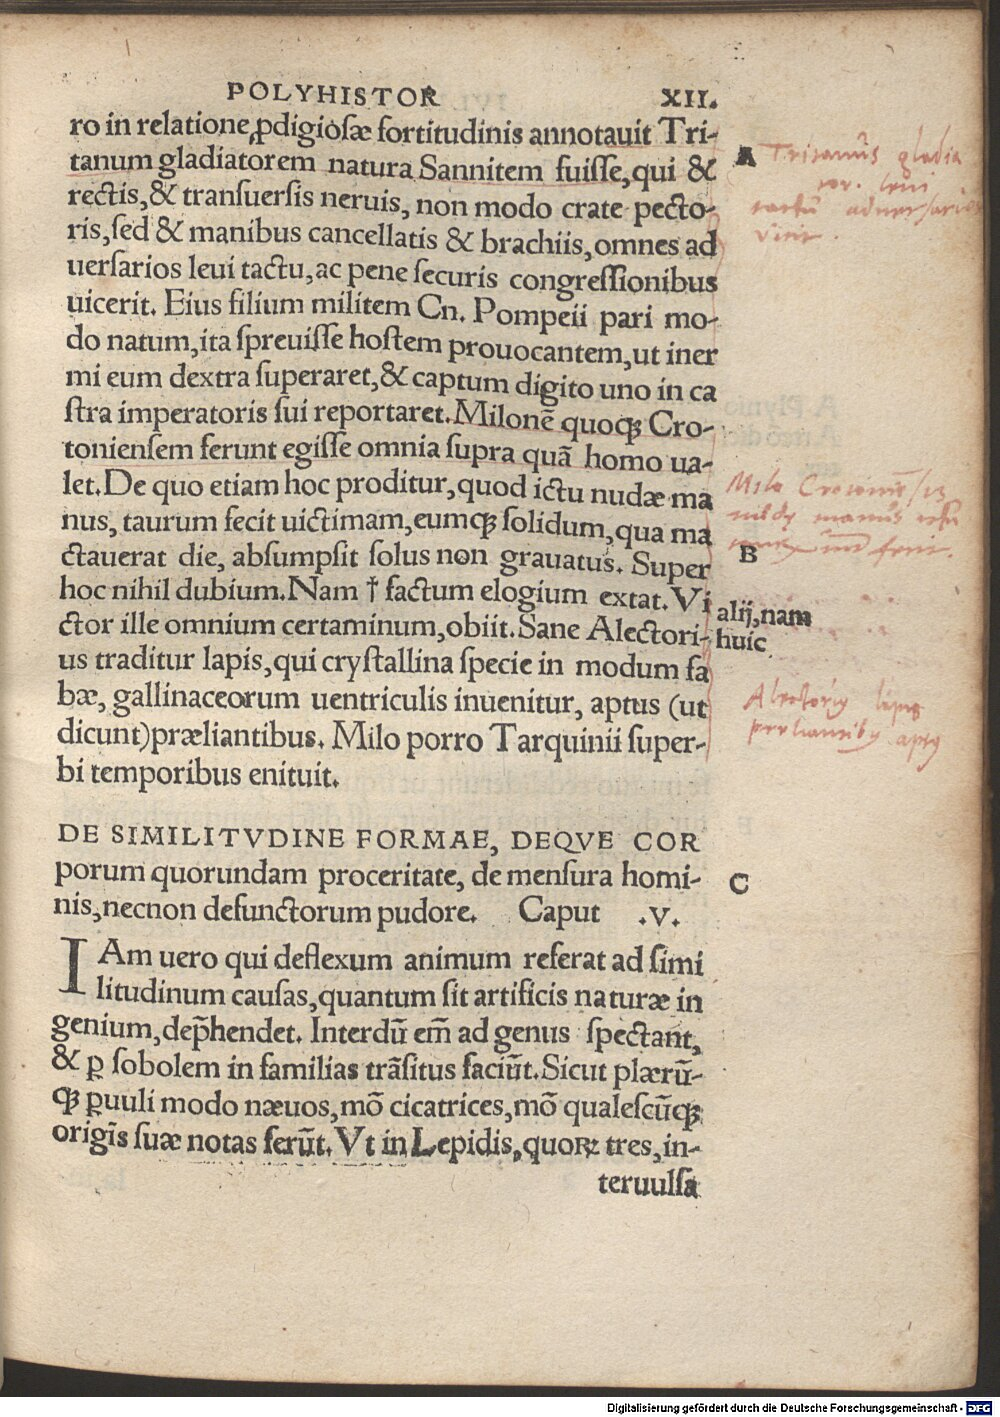 POLYHISTOR XII.
ro in relatione ꝓdigiosæ fortitudinis annotauit Tri-
tanum gladiatorem natura Sannitem fuisse, qui &
rectis, & transuersis neruis, non modo crate pecto-
ris, sed & manibus cancellatis & brachiis, omnes ad
uersarios leui tactu, ac pene securis congressionibus
uicerit. Eius filium militem Cn. Pompeii pari mo-
do natum, ita spreuisse hostem prouocantem, ut iner
mi eum dextra superaret, & captum digito uno in ca
stra imperatoris sui reportaret. Milonē quoqȝ Cro-
toniensem ferunt egisse omnia supra quā homo ua-
let. De quo etiam hoc proditur, quod ictu nudæ ma
nus, taurum fecit uictimam, eumqȝ solidum, qua ma
ctauerat die, absumpsit solus non grauatus. Super
hoc nihil dubium. Nam † factum elogium extat. Vi
ctor ille omnium certaminum, obiit. Sane Alectori-
us traditur lapis, qui crystallina specie in modum fa
bæ, gallinaceorum uentriculis inuenitur, aptus (ut
dicunt) præliantibus. Milo porro Tarquinii super-
bi temporibus enituit.
A
Tritanus gladia
tor. leui
tactū aduersarios
vicit.
B
alij, nam
huic
Alectoriꝰ lapis
preliantibꝰ aptꝰ
DE SIMILITVDINE FORMAE, DEQVE COR
porum quorundam proceritate, de mensura homi-
nis, necnon defunctorum pudore. Caput .V.
C
IAm uero qui deflexum animum referat ad simi
litudinum causas, quantum sit artificis naturæ in
genium, dep̄hendet. Interdū em̄ ad genus spectant,
& ꝑ sobolem in familias trāsitus faciūt. Sicut plærū-
qȝ ꝑuuli modo næuos, mō cicatrices, mō qualescūqȝ
origīs suæ notas ferūt. Vt in Lepidis, quoꝝ tres, in-
teruulsa
Digitalisierung gefördert durch die Deutsche Forschungsgemeinschaft - DFG